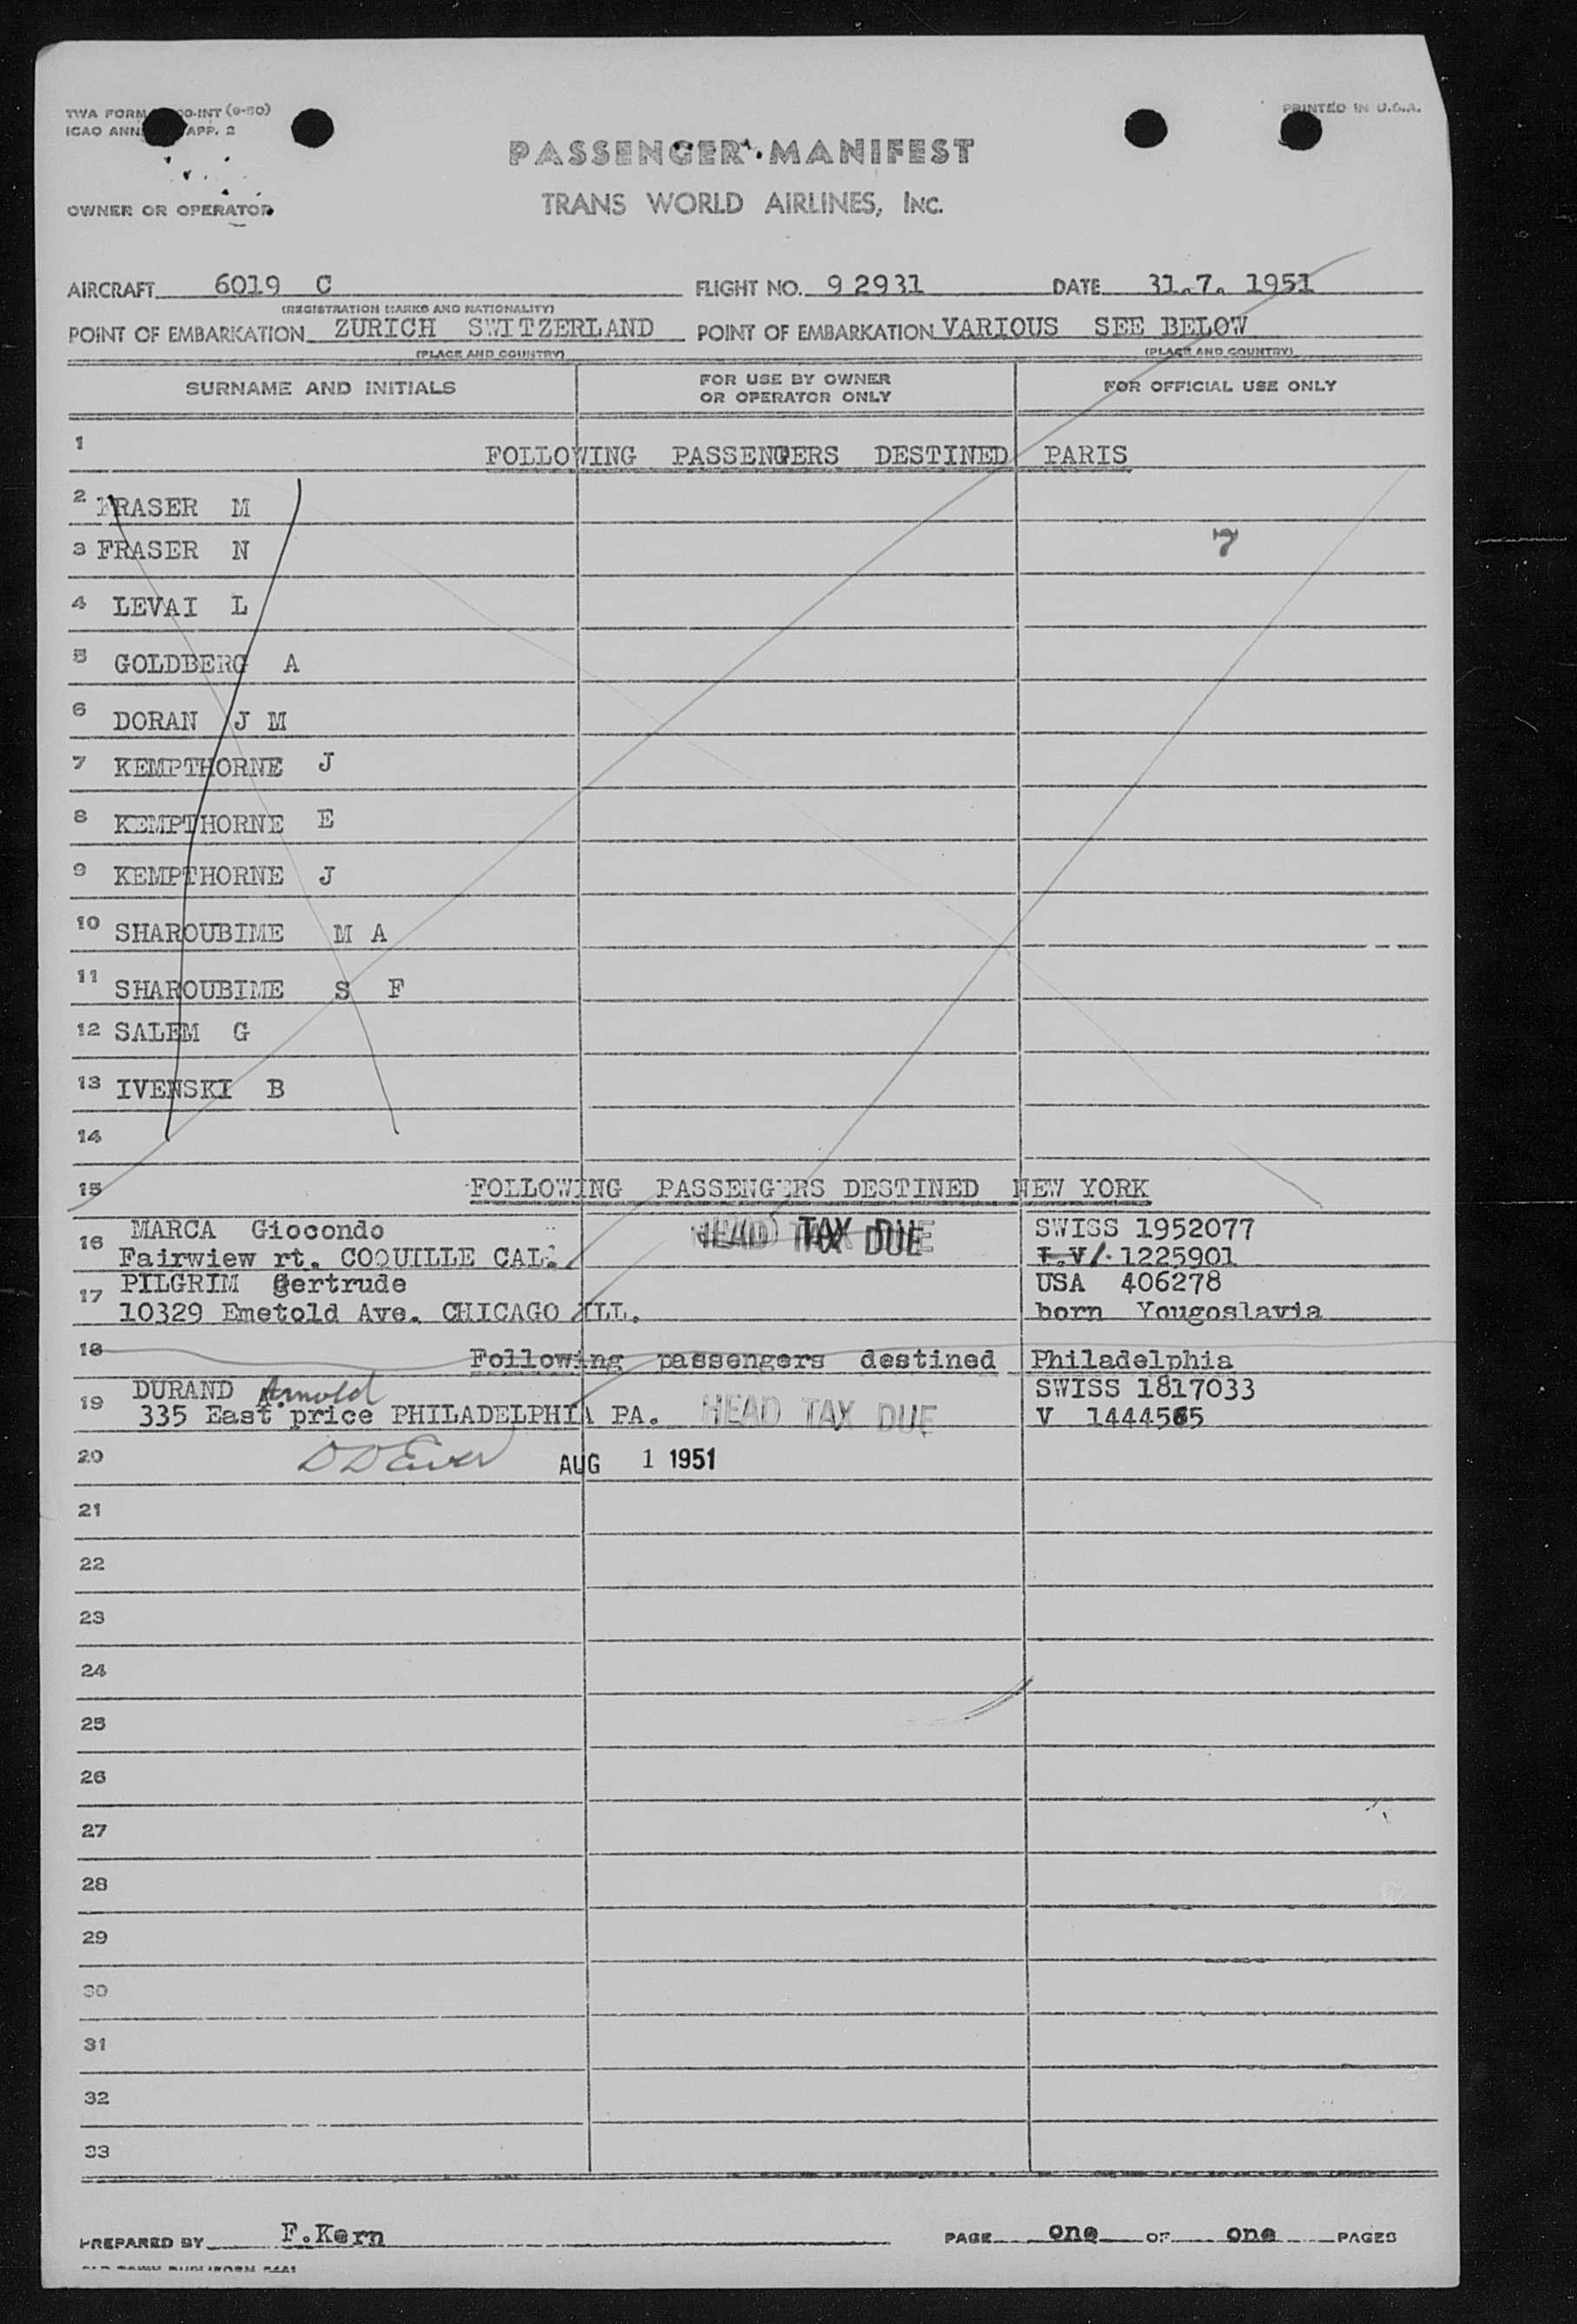 TWA FORM OO-INT (9-50) PRINTED IN U.S.A.
ICAO ANN APP. 2
PASSENGER MANIFEST
OWNER OR OPERATOR TRANS WORLD AIRLINES, INC.
AIRCRAFT 6019 C FLIGHT NO. 9 2931 DATE 31.7. 1951
(REGISTRATION MARKS AND NATIONALITY)
POINT OF EMBARKATION ZURICH SWITZERLAND POINT OF EMBARKATION VARIOUS SEE BELOW
(PLACE AND COUNTRY) (PLACE AND COUNTRY)
SURNAME AND INITIALS FOR USE BY OWNER OR OPERATOR ONLY FOR OFFICIAL USE ONLY
1 FOLLOWING PASSENGERS DESTINED PARIS
2 FRASER M
3 FRASER N 7
4 LEVAI L
5 GOLDBERG A
6 DORAN J M
7 KEMPTHORNE J
8 KEMPTHORNE E
9 KEMPTHORNE J
10 SHAROUBIME M A
11 SHAROUBIME S F
12 SALEM G
13 IVENSKI B
14
15 FOLLOWING PASSENGERS DESTINED NEW YORK
16 MARCA Giocondo HEAD TAX DUE SWISS 1952077
Fairwiew rt. COQUILLE CAL. I.V/. 1225901
17 PILGRIM Gertrude USA 406278
10329 Emetold Ave. CHICAGO ILL. born Yougoslavia
18 Following passengers destined Philadelphia
19 DURAND Arnold SWISS 1817033
335 East price PHILADELPHIA PA. HEAD TAX DUE V 1444565
20 AUG 1 1951
21
22
23
24
25
26
27
28
29
30
31
32
33
PREPARED BY F.Kern PAGE one OF one PAGES